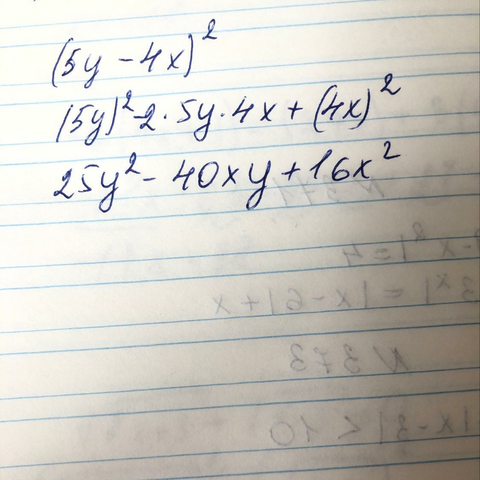 (5y - 4x)²
(5y)² - 2 · 5y · 4x + (4x)²
25y² - 40xy + 16x²